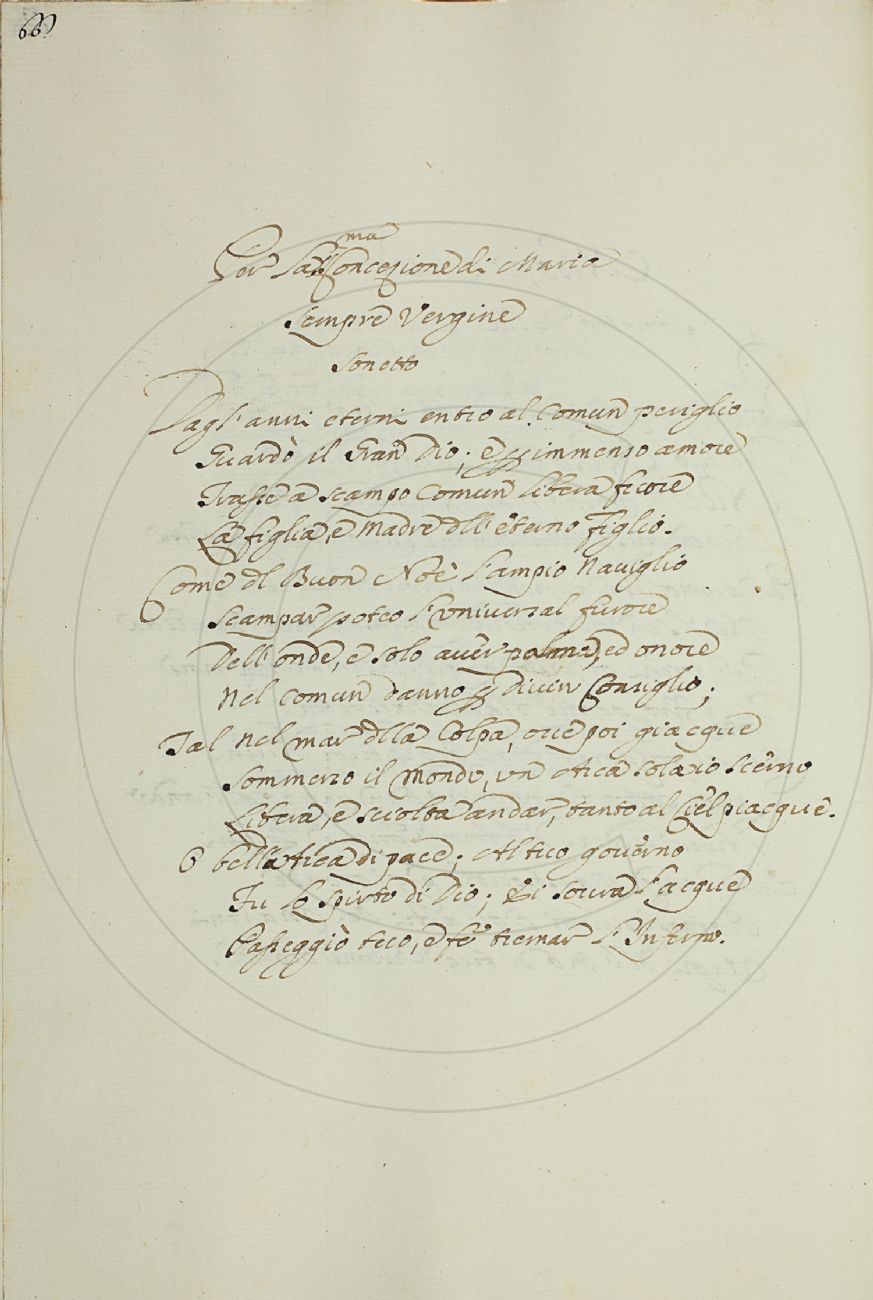 66
Per la SS.ma Concezione di Maria
Sempre Vergine
Sonetto
Dagl' anni eterni entro al comun periglio
Guardò il Gran Dio; e p immenso amore
Trasse a scampo comun libera fiore
La figlia, e Madre dll' eterno Figlio.
Come dl Buon Noè l'ampio Naviglio
Scampar poteo l'universal furore
Dell' onde, e solo aver palma, ed onore
Nel comun danno p divin Consiglio;
Tal nel mar dlla Colpa, ove poi giacque
Sommerso il mondo, un Arca solo io scerno
Libera, e sciolta andar, tanto al Ciel piacque.
O bella Arca di pace; Al tuo governo
Fu lo Spirto di Dio; Ei sovra l'acque
Passeggiò teco, e fe' tremar l'Inferno.